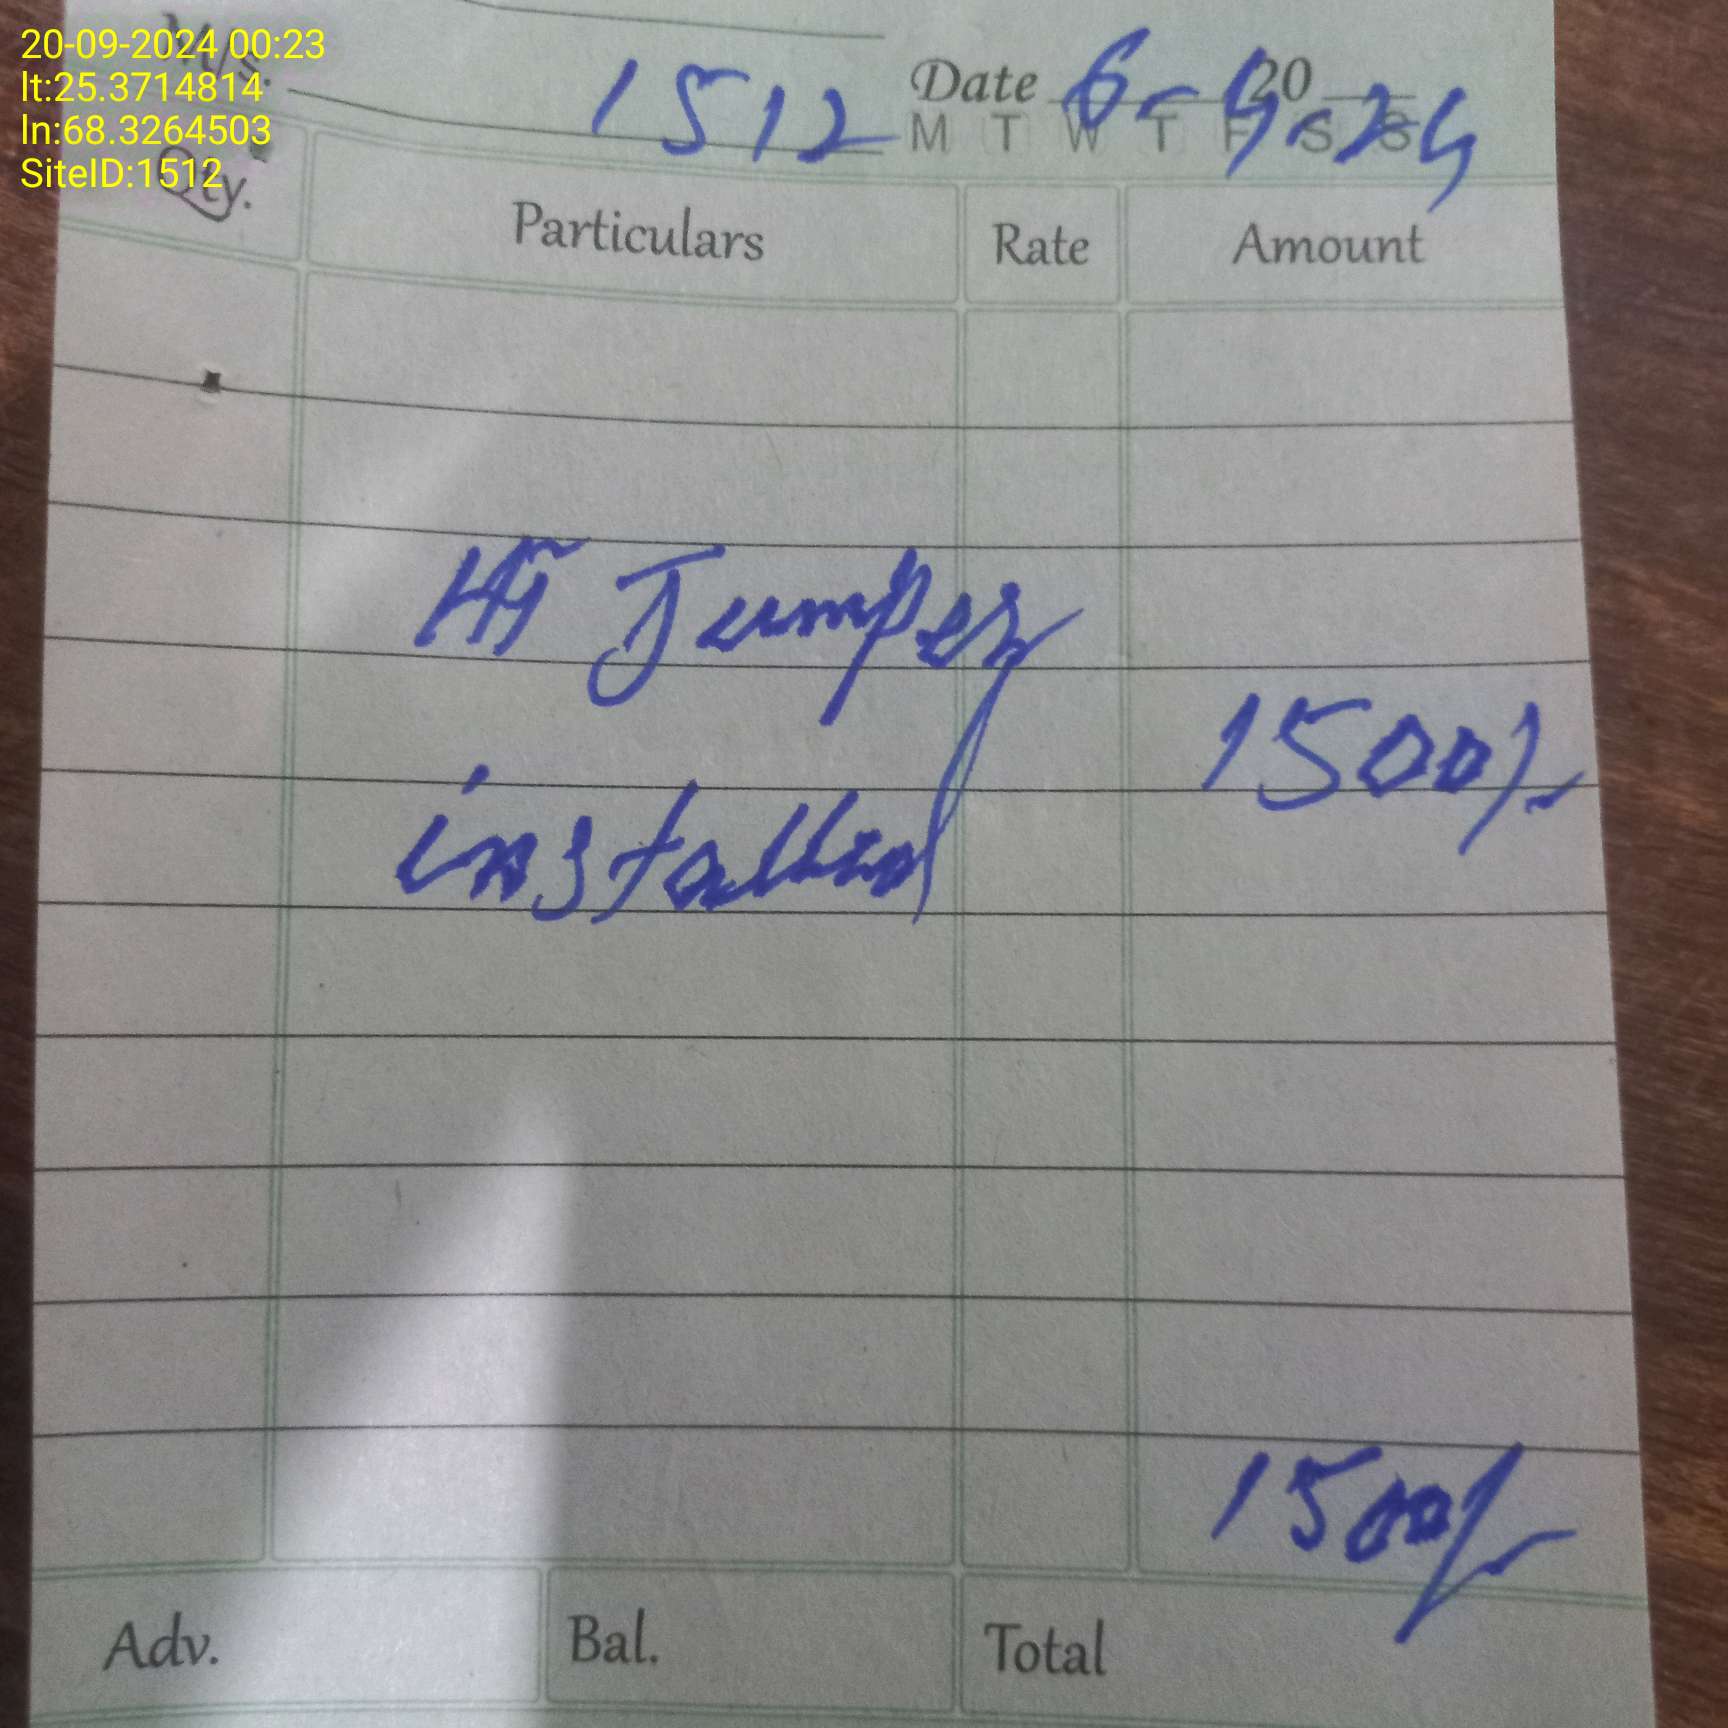 20-09-2024 00:23
lt:25.3714814
ln:68.3264503
SiteID:1512
M/s.
1512 Date 6-9-24 20
M T W T F S S
Qty. Particulars Rate Amount
HT Jumper
1500/-
installed
1500/-
Adv. Bal. Total